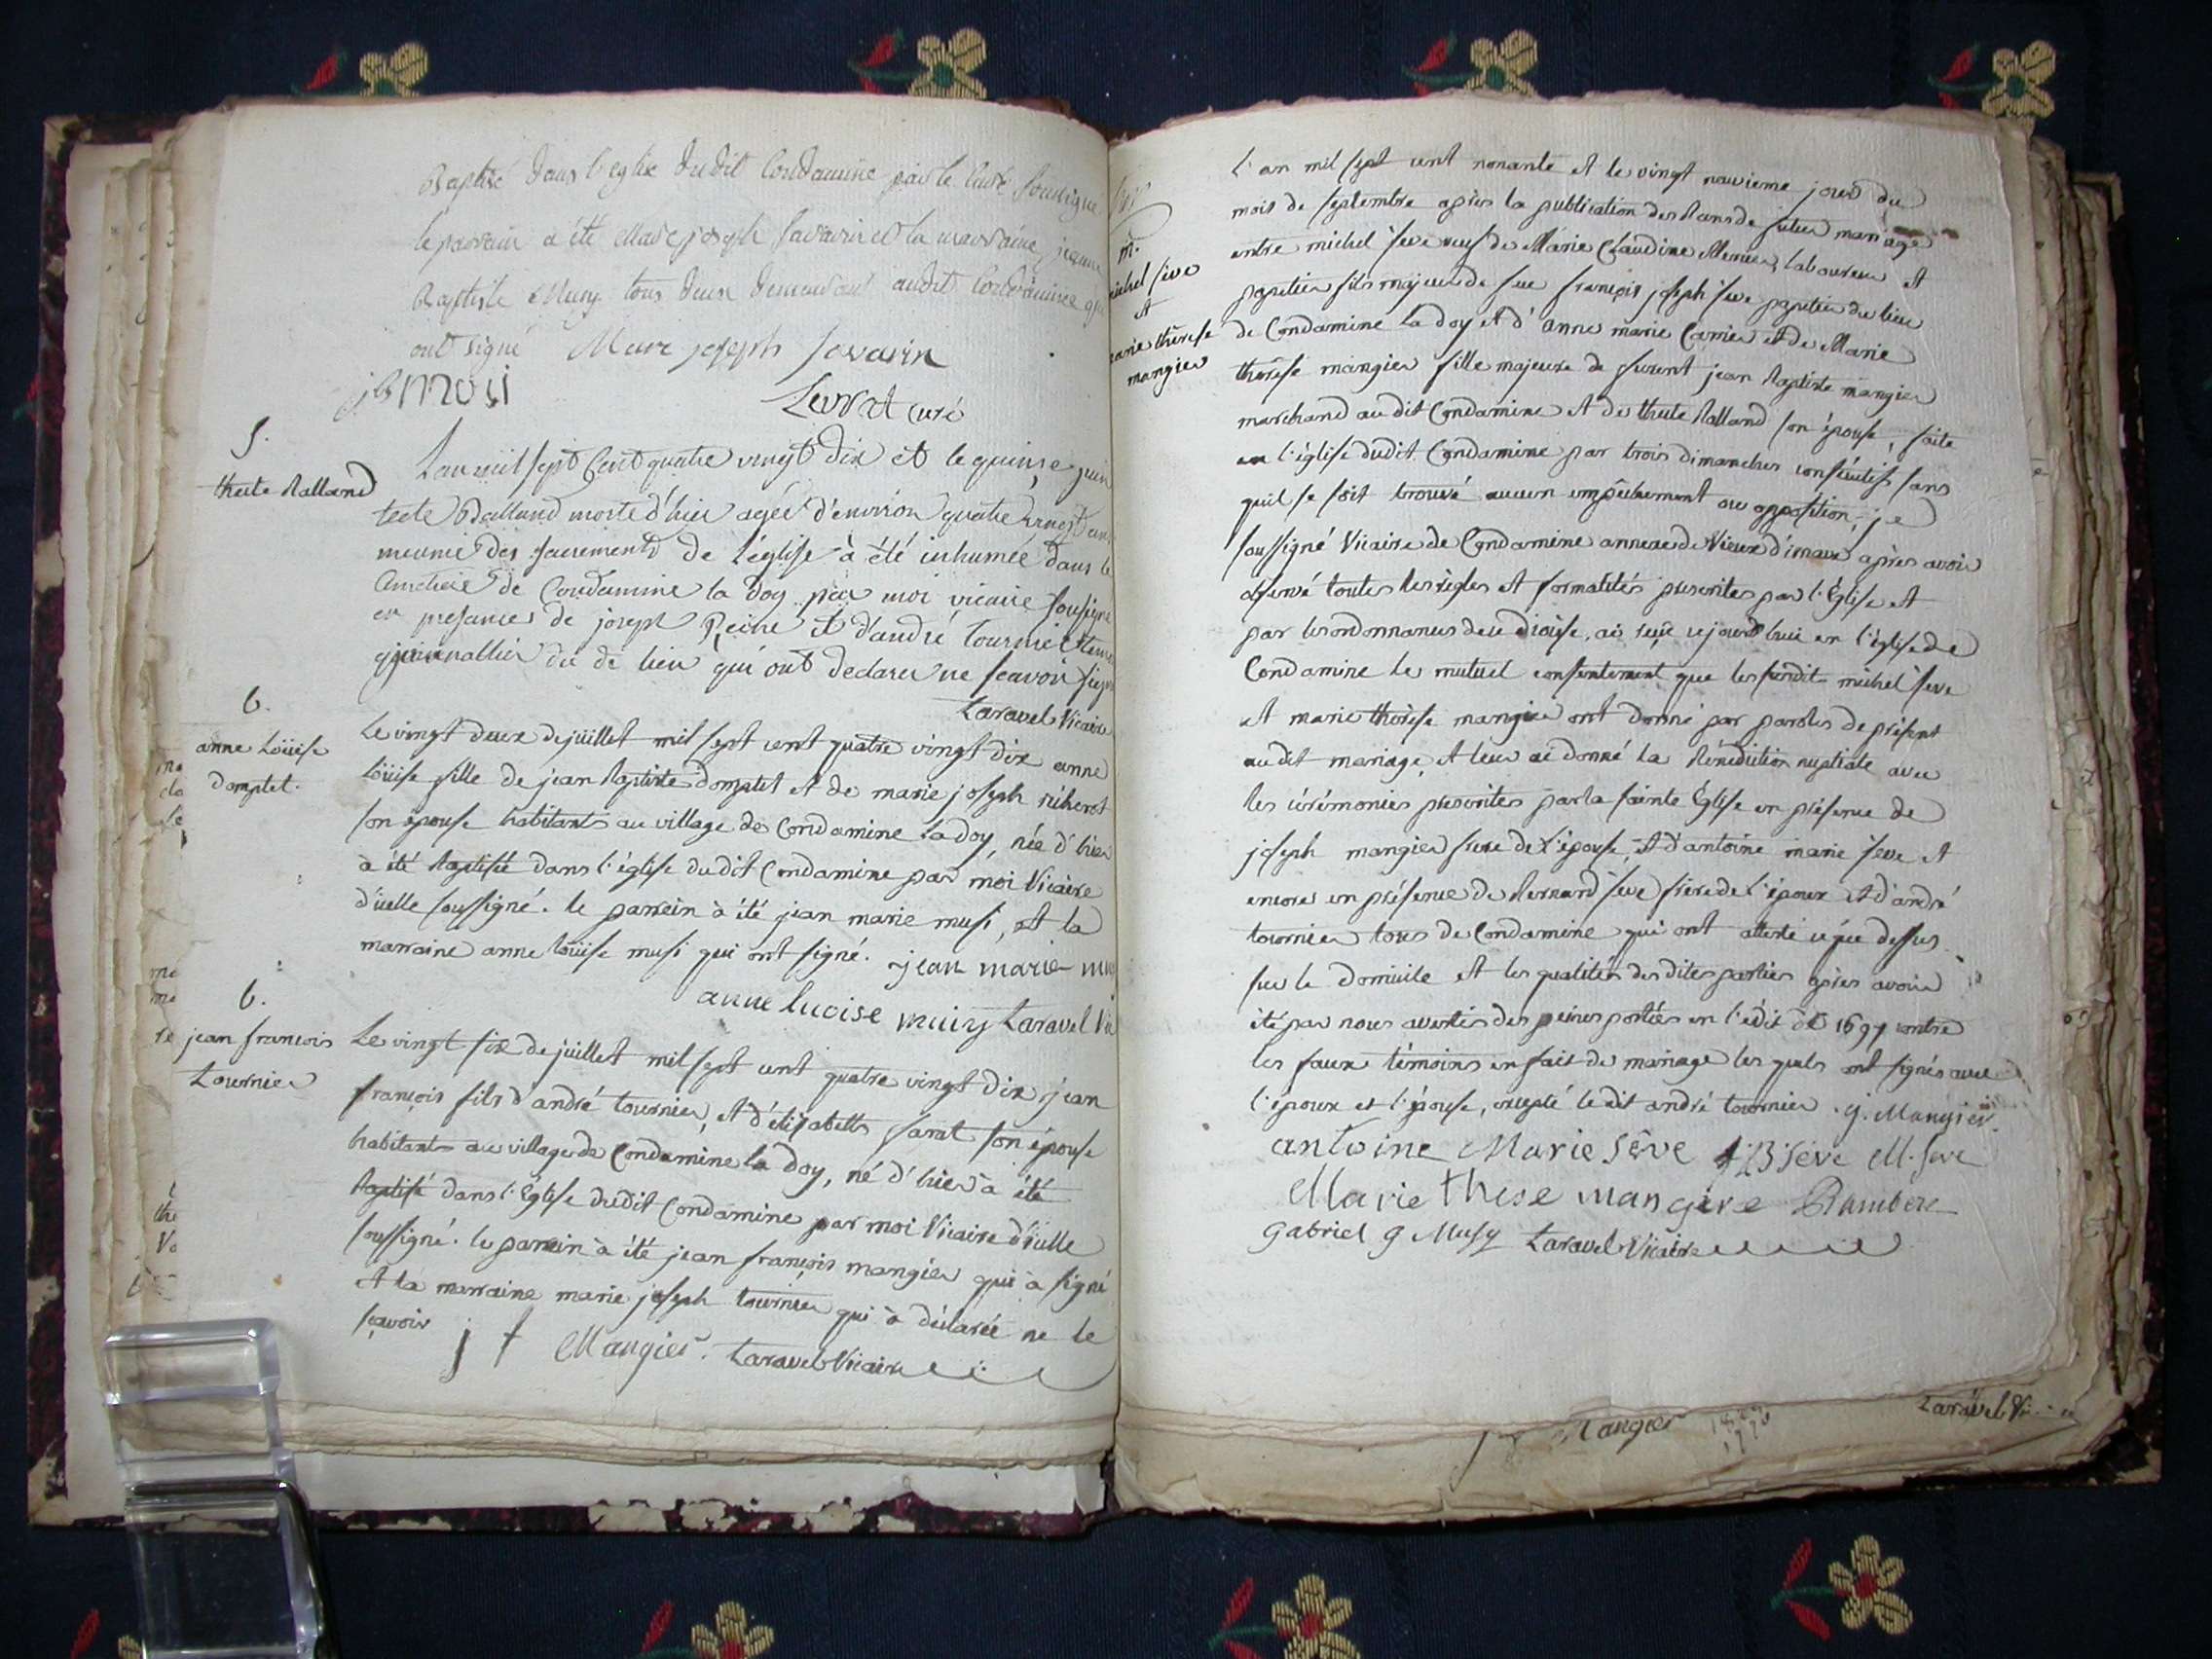 Baptisé dans l'eglise dudit Condamine par le curé soussigné
le parrain a été Marc joseph savarin et la marraine jeanne
Baptiste Musy tous deux demeurant audit Condamine qui
ont signé Marc joseph savarin
jb musi
curé
S.
thecle Balland
L'an mil sept Cent quatre vingt dix et le quinze juin
tecle Balland morte d'hier agée d'environ quatre vingt ans
meunie des sacrements de l'église à été inhumée dans le
Cimetiere de Condamine la doy par moi vicaire sousigné
en presances de joseph Reine et d'andré tournier
du de lieu qui ont declarer ne scavoir signer
Laravel Vicaire
b.
anne Loüise
domptet.
Le vingt deux de juillet mil sept cent quatre vingt dix anne
Loüise fille de jean Baptiste domptet et de marie joseph
son épouse habitants au village de Condamine la doy, née d'hier
à été Baptisée dans l'église dudit Condamine par moi Vicaire
d'icelle soussigné. le parrein à été jean marie musi, et la
marraine anne loüise musi qui ont signé. jean marie
anne lucise muisy Laravel Vic
b.
jean francois
tournier
Le vingt six de juillet mil sept cent quatre vingt dix jean
françois fils d'andré tournier, et d'élizabeth savat son épouse
habitants au village de Condamine la doy, né d'hier à été
Baptisé dans l'Église dudit Condamine par moi Vicaire d'icelle
soussigné. le parrein à été jean françois mangier qui à signé
et la marraine marie joseph tournier qui à déclarée ne le
sçavoir j f Mangier. Laravel Vicaire
m.
michel seve
et
marie thérese
mangier
l'an mil sept cent nonante et le vingt neuvieme jour du
mois de septembre après la publication des Bans de futur mariage
entre michel seve veuf de Marie Claudine Mermier, laboureur et
papetier fils majeur de feu françois joseph seve papetier du lieu
de Condamine la doy et d'anne marie Carrier et de Marie
thérèse mangier fille majeure de furent jean Baptiste mangier
marchand au dit Condamine et de thecle Balland son épouse, faite
en l'église dudit Condamine par trois dimanches consécutifs sans
quil se soit trouvé aucun empêchement ou opposition; je
soussigné Vicaire de Condamine annexe de Vieux d'izenave après avoir
observé toutes les règles et formalités prescrites par l'Église et
par les ordonnances de ce diocèse, ai reçu cejourd'huie en l'église de
Condamine le mutuel consentement que les susdits michel seve
et marie thérèse mangier ont donné par paroles de présent
audit mariage, et leur ai donné la Bénédiction nuptiale avec
les cérémonies prescrites par la sainte Église en présence de
joseph mangier frere de l'épouse, et d'antoine marie seve et
encore en présence de Bernard seve frère de l'époux et d'andré
tournier tous de Condamine qui ont attesté ce que dessus
sur le domicile et les qualités des dites parties après avoir
été par nous avertis des peines portées en l'édit de 1697 contre
les faux témoins en fait de mariage les quels ont signés avec
l'époux et l'épouse, excepté le dit andré tournier. j. Mangier.
antoine Marie sêve B seve M. seve
Marie these mangire
Gabriel g Musy Laravel Vicaire
Mangier
Laravel Vi